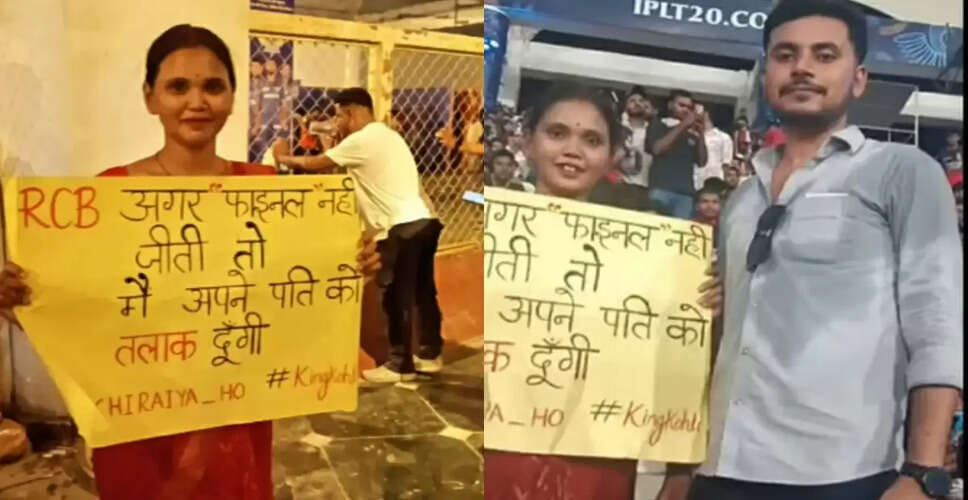 RCB अगर "फाइनल" नही
जीती तो
मै अपने पति को
तलाक दूँगी
CHIRAIYA_HO #KingKohli
IPLT20.CO
गर "फाइनल" नही
ीती तो
अपने पति को
क दूँगी
YA_HO #KingKohli